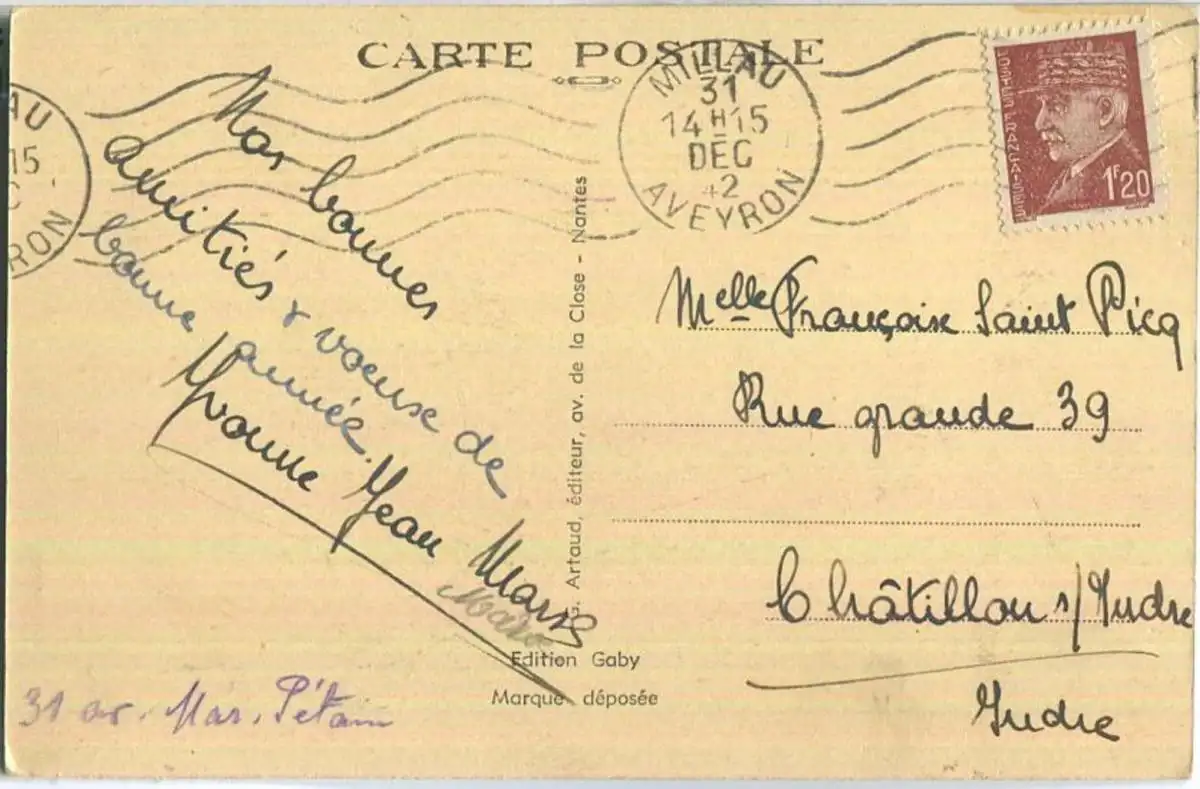 CARTE POSTALE
MILLAU
31
14H15
DEC
42
AVEYRON
AU
15
C
RON
1F20
Nos bonnes
amitiés & voeuse de
bonne année.
Yvonne Jean Marse
31 av. Mar. Pétain
G. Artaud, éditeur, av. de la Close - Nantes
Edition Gaby
Marque déposée
Melle Françoise Saint Picq
Rue grande 39
Châtillon s/Indre
Indre